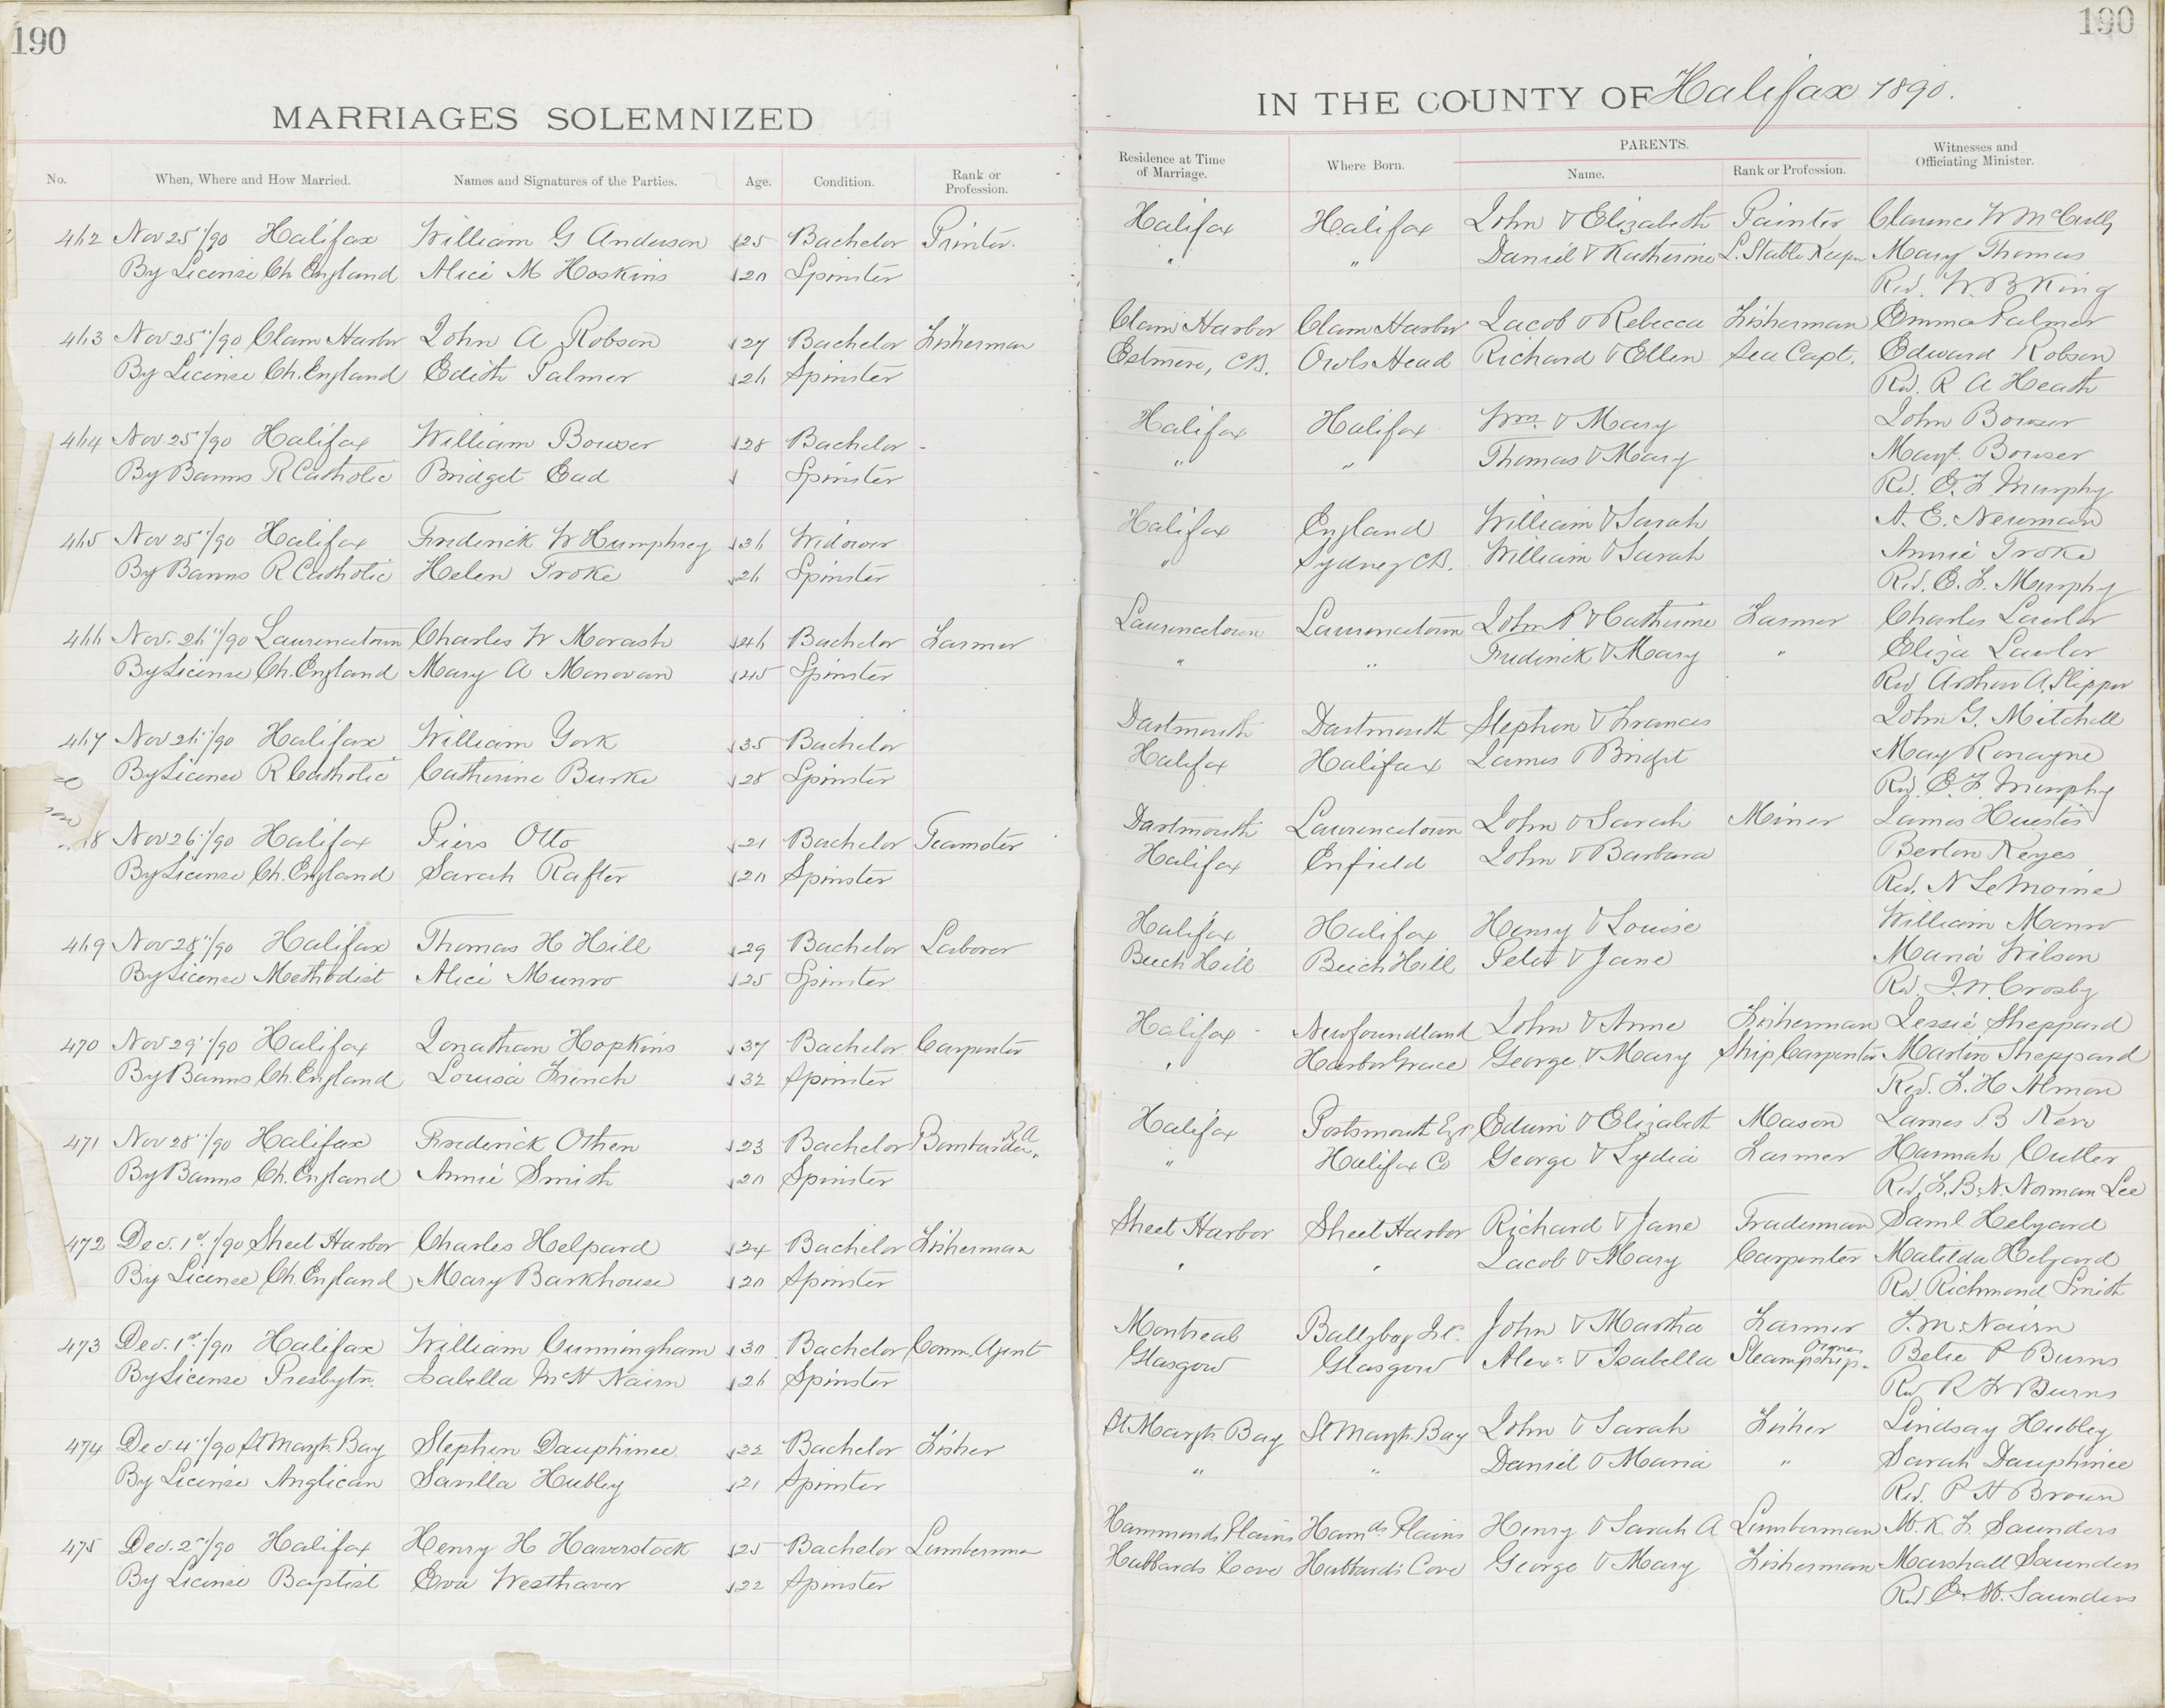 190
MARRIAGES SOLEMNIZED
No. When, Where and How Married. Names and Signatures of the Parties. Age. Condition. Rank or Profession.
462 Nov 25"/90 Halifax William G Anderson 25 Bachelor Printer.
By License Ch. England Alice M Hoskins 20 Spinster
463 Nov 25"/90 Clam Harbor John A Robson 27 Bachelor Fisherman
By License Ch. England Edith Palmer 26 Spinster
464 Nov 25"/90 Halifax William Bowser 28 Bachelor -
By Banns R Catholic Bridget Ead Spinster
465 Nov 25"/90 Halifax Frederick W Humphrey 36 Widower
By Banns R Catholic Helen Troke 26 Spinster
466 Nov. 26"/90 Laurencetown Charles W Morash 46 Bachelor Farmer
By License Ch. England Mary A Monovan 45 Spinster
467 Nov 26"/90 Halifax William York 35 Bachelor
By License R Catholic Catherine Burke 28 Spinster
68 Nov 26"/90 Halifax Piers Otto 21 Bachelor Teamster
By License Ch. England Sarah Rafter 20 Spinster
469 Nov 28"/90 Halifax Thomas H Hill 29 Bachelor Laborer
By License Methodist Alice Munro 25 Spinster
470 Nov 29"/90 Halifax Jonathan Hopkins 37 Bachelor Carpenter
By Banns Ch. England Louisa French 32 Spinster
471 Nov 28"/90 Halifax Frederick Othen 23 Bachelor Bombardier, R A
By Banns Ch. England Annie Smith 20 Spinster
472 Dec. 1st/90 Sheet Harbor Charles Helpard 24 Bachelor Fisherman
By License Ch. England Mary Barkhouse 20 Spinster
473 Dec. 1st/90 Halifax William Cunningham 30 Bachelor Comm. Agent
By License Presbytn. Isabella McH Nairn 26 Spinster
474 Dec. 4"/90 St Margts. Bay Stephen Dauphinee 22 Bachelor Fisher
By License Anglican Savilla Hubley 21 Spinster
475 Dec. 2"/90 Halifax Henry H Haverstock 25 Bachelor Lumberman
By License Baptist Eva Westhaver 22 Spinster
190
IN THE COUNTY OF Halifax 1890.
Residence at Time of Marriage. Where Born. PARENTS. Name. Rank or Profession. Witnesses and Officiating Minister.
Halifax Halifax John & Elizabeth Painter Clarence W McCully
" " Daniel & Katherine L. Stable Keeper Mary Thomas
Rev. W. B King
Clam Harbor Clam Harbor Jacob & Rebecca Fisherman Emma Palmer
Estmere, CB. Owls Head Richard & Ellen Sea Capt. Edward Robson
Rev. R A Heath
Halifax Halifax Wm. & Mary John Bowser
" " Thomas & Mary Margt. Bowser
Rev. E. F. Murphy
Halifax England William & Sarah A. E. Newman
" Sydney CB. William & Sarah Annie Troke
Rev. E. F. Murphy
Laurencetown Laurencetown John P & Catherine Farmer Charles Lawlor
" " Frederick & Mary " Eliza Lawlor
Rev Arthur A. Slipper
Dartmouth Dartmouth Stephen & Frances John G. Mitchell
Halifax Halifax James & Bridget May Ronayne
Rev. E. F. Murphy
Dartmouth Laurencetown John & Sarah Miner James Huestis
Halifax Enfield John & Barbara Berton Keyes
Rev. N LeMoine
Halifax Halifax Henry & Louise William Munro
Beech Hill Beech Hill Peter & Jane Maria Wilson
Rev. J. W. Crosby
Halifax Newfoundland John & Anne Fisherman Jessie Sheppard
" Harbor Grace George & Mary Ship Carpenter Martin Sheppard
Rev. F. H Almon
Halifax Portsmouth Eng. Edwin & Elizabeth Mason James B New
" Halifax Co George & Lydia Farmer Hannah Cutler
Rev. F. B. N. Norman Lee
Sheet Harbor Sheet Harbor Richard & Jane Tradesman Saml. Helpard
" " Jacob & Mary Carpenter Matilda Helpard
Rev Richmond Smith
Montreal Ballybay Ir. John & Martha Farmer F. M. Nairn
Glasgow Glasgow Alex. & Isabella Steamship Owner. Belle P Burns
Rev R F Burns
St Margts. Bay St Margts. Bay John & Sarah Fisher Lindsay Hubley
" " Daniel & Maria " Sarah Dauphinee
Rev. P H Brown
Hammonds Plains Hamds. Plains Henry & Sarah A Lumberman M. K. F. Saunders
Hubbards Cove Hubbards Cove George & Mary Fisherman Marshall Saunders
Rev. E. M. Saunders